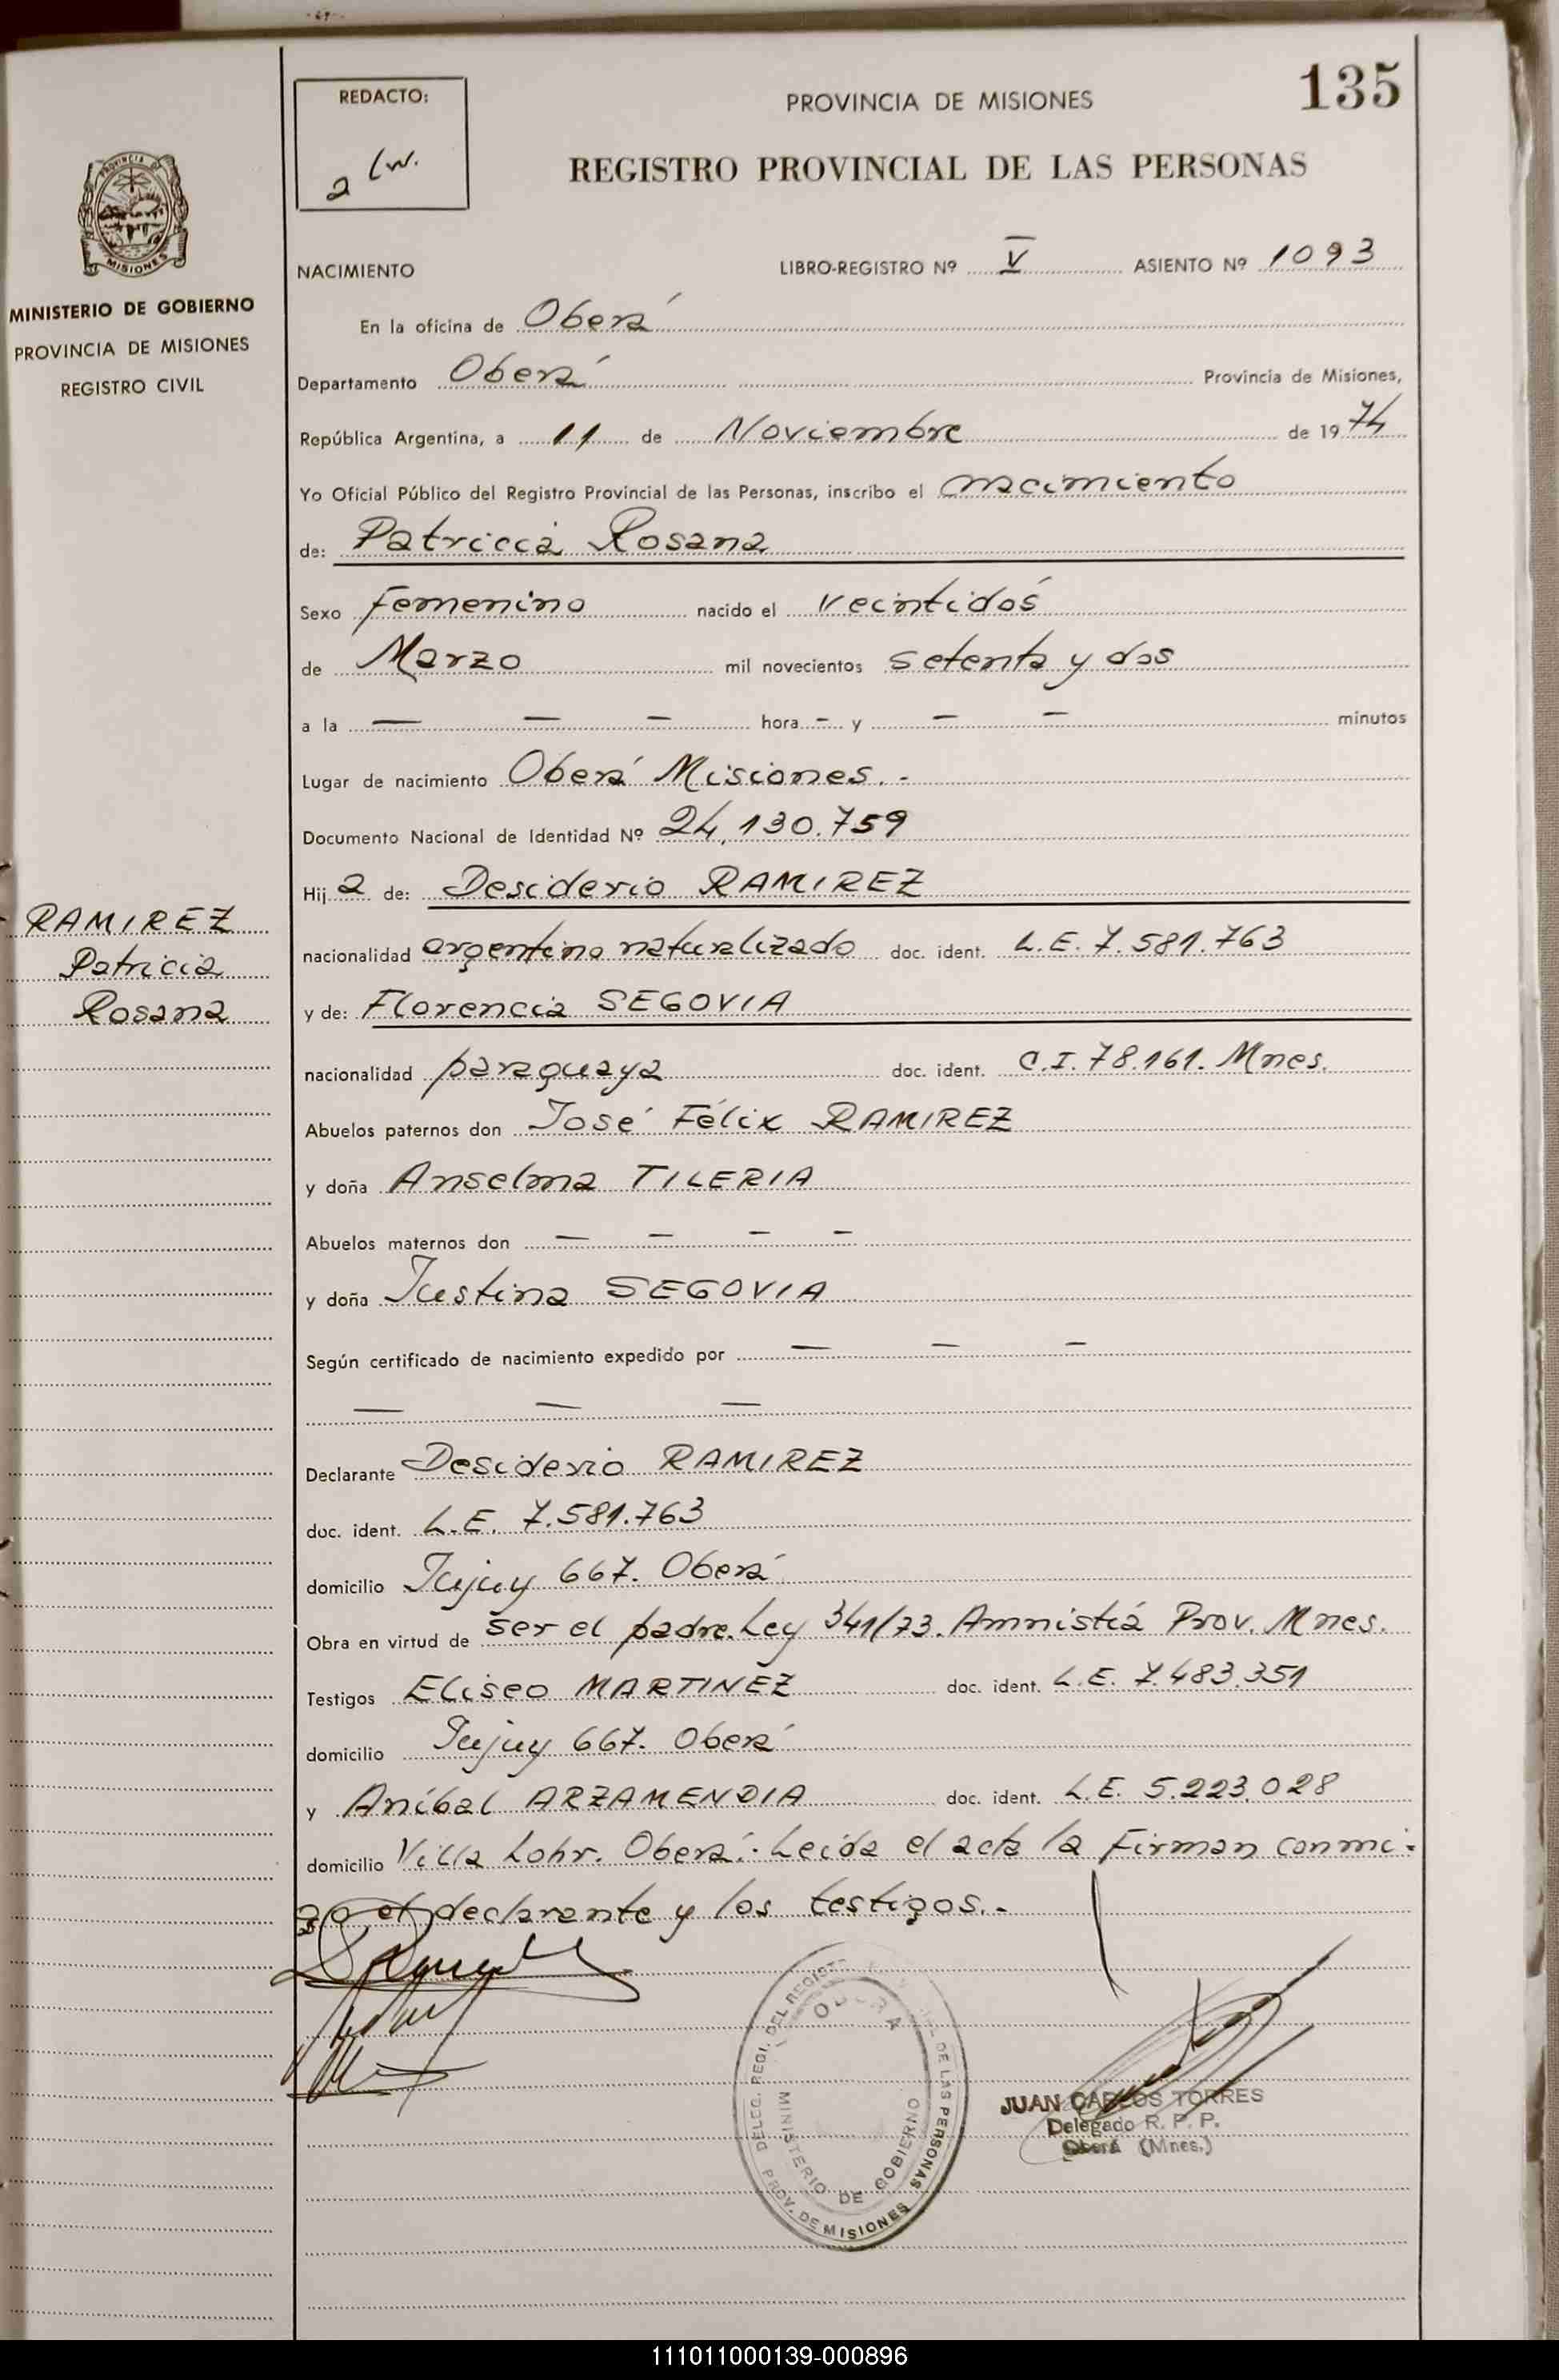 135
REDACTO:
PROVINCIA DE MISIONES
REGISTRO PROVINCIAL DE LAS PERSONAS
PROVINCIA DE
MISIONES
MINISTERIO DE GOBIERNO
PROVINCIA DE MISIONES
REGISTRO CIVIL
NACIMIENTO LIBRO-REGISTRO Nº V ASIENTO Nº 1093
En la oficina de Oberá
Departamento Oberá Provincia de Misiones,
República Argentina, a 11 de Noviembre de 1974
Yo Oficial Público del Registro Provincial de las Personas, inscribo el nacimiento
de: Patricia Rosana
Sexo femenino nacido el veintidós
de Marzo mil novecientos setenta y dos
a la — — — hora - y — — minutos
Lugar de nacimiento Oberá Misiones.-
Documento Nacional de Identidad Nº 24.130.759
Hija de: Desiderio RAMIREZ
RAMIREZ
Patricia
Rosana
nacionalidad argentino naturalizado doc. ident. L.E. 7.581.763
y de: Florencia SEGOVIA
nacionalidad paraguaya doc. ident. C.I. 78.161. Mnes.
Abuelos paternos don José Félix RAMIREZ
y doña Anselma TILERIA
Abuelos maternos don — — — —
y doña Justina SEGOVIA
Según certificado de nacimiento expedido por — — —
— — —
Declarante Desiderio RAMIREZ
doc. ident. L.E. 7.581.763
domicilio Jujuy 667. Oberá
Obra en virtud de ser el padre. Ley 341/73. Amnistiá Prov. Mnes.
Testigos Eliseo MARTINEZ doc. ident. L.E. 7.483.351
domicilio Jujuy 667. Oberá
y Aníbal ARZAMENDIA doc. ident. L.E. 5.223.028
domicilio Villa Lohr. Oberá.- Leída el acta la firman conmi-
go el declarante y los testigos.-
DELEG. REGI. DEL REGISTRO DE LAS PERSONAS
OBERA
MINISTERIO DE GOBIERNO
PROV. DE MISIONES
JUAN CARLOS TORRES
Delegado R. P. P.
Oberá (Mnes.)
111011000139-000896